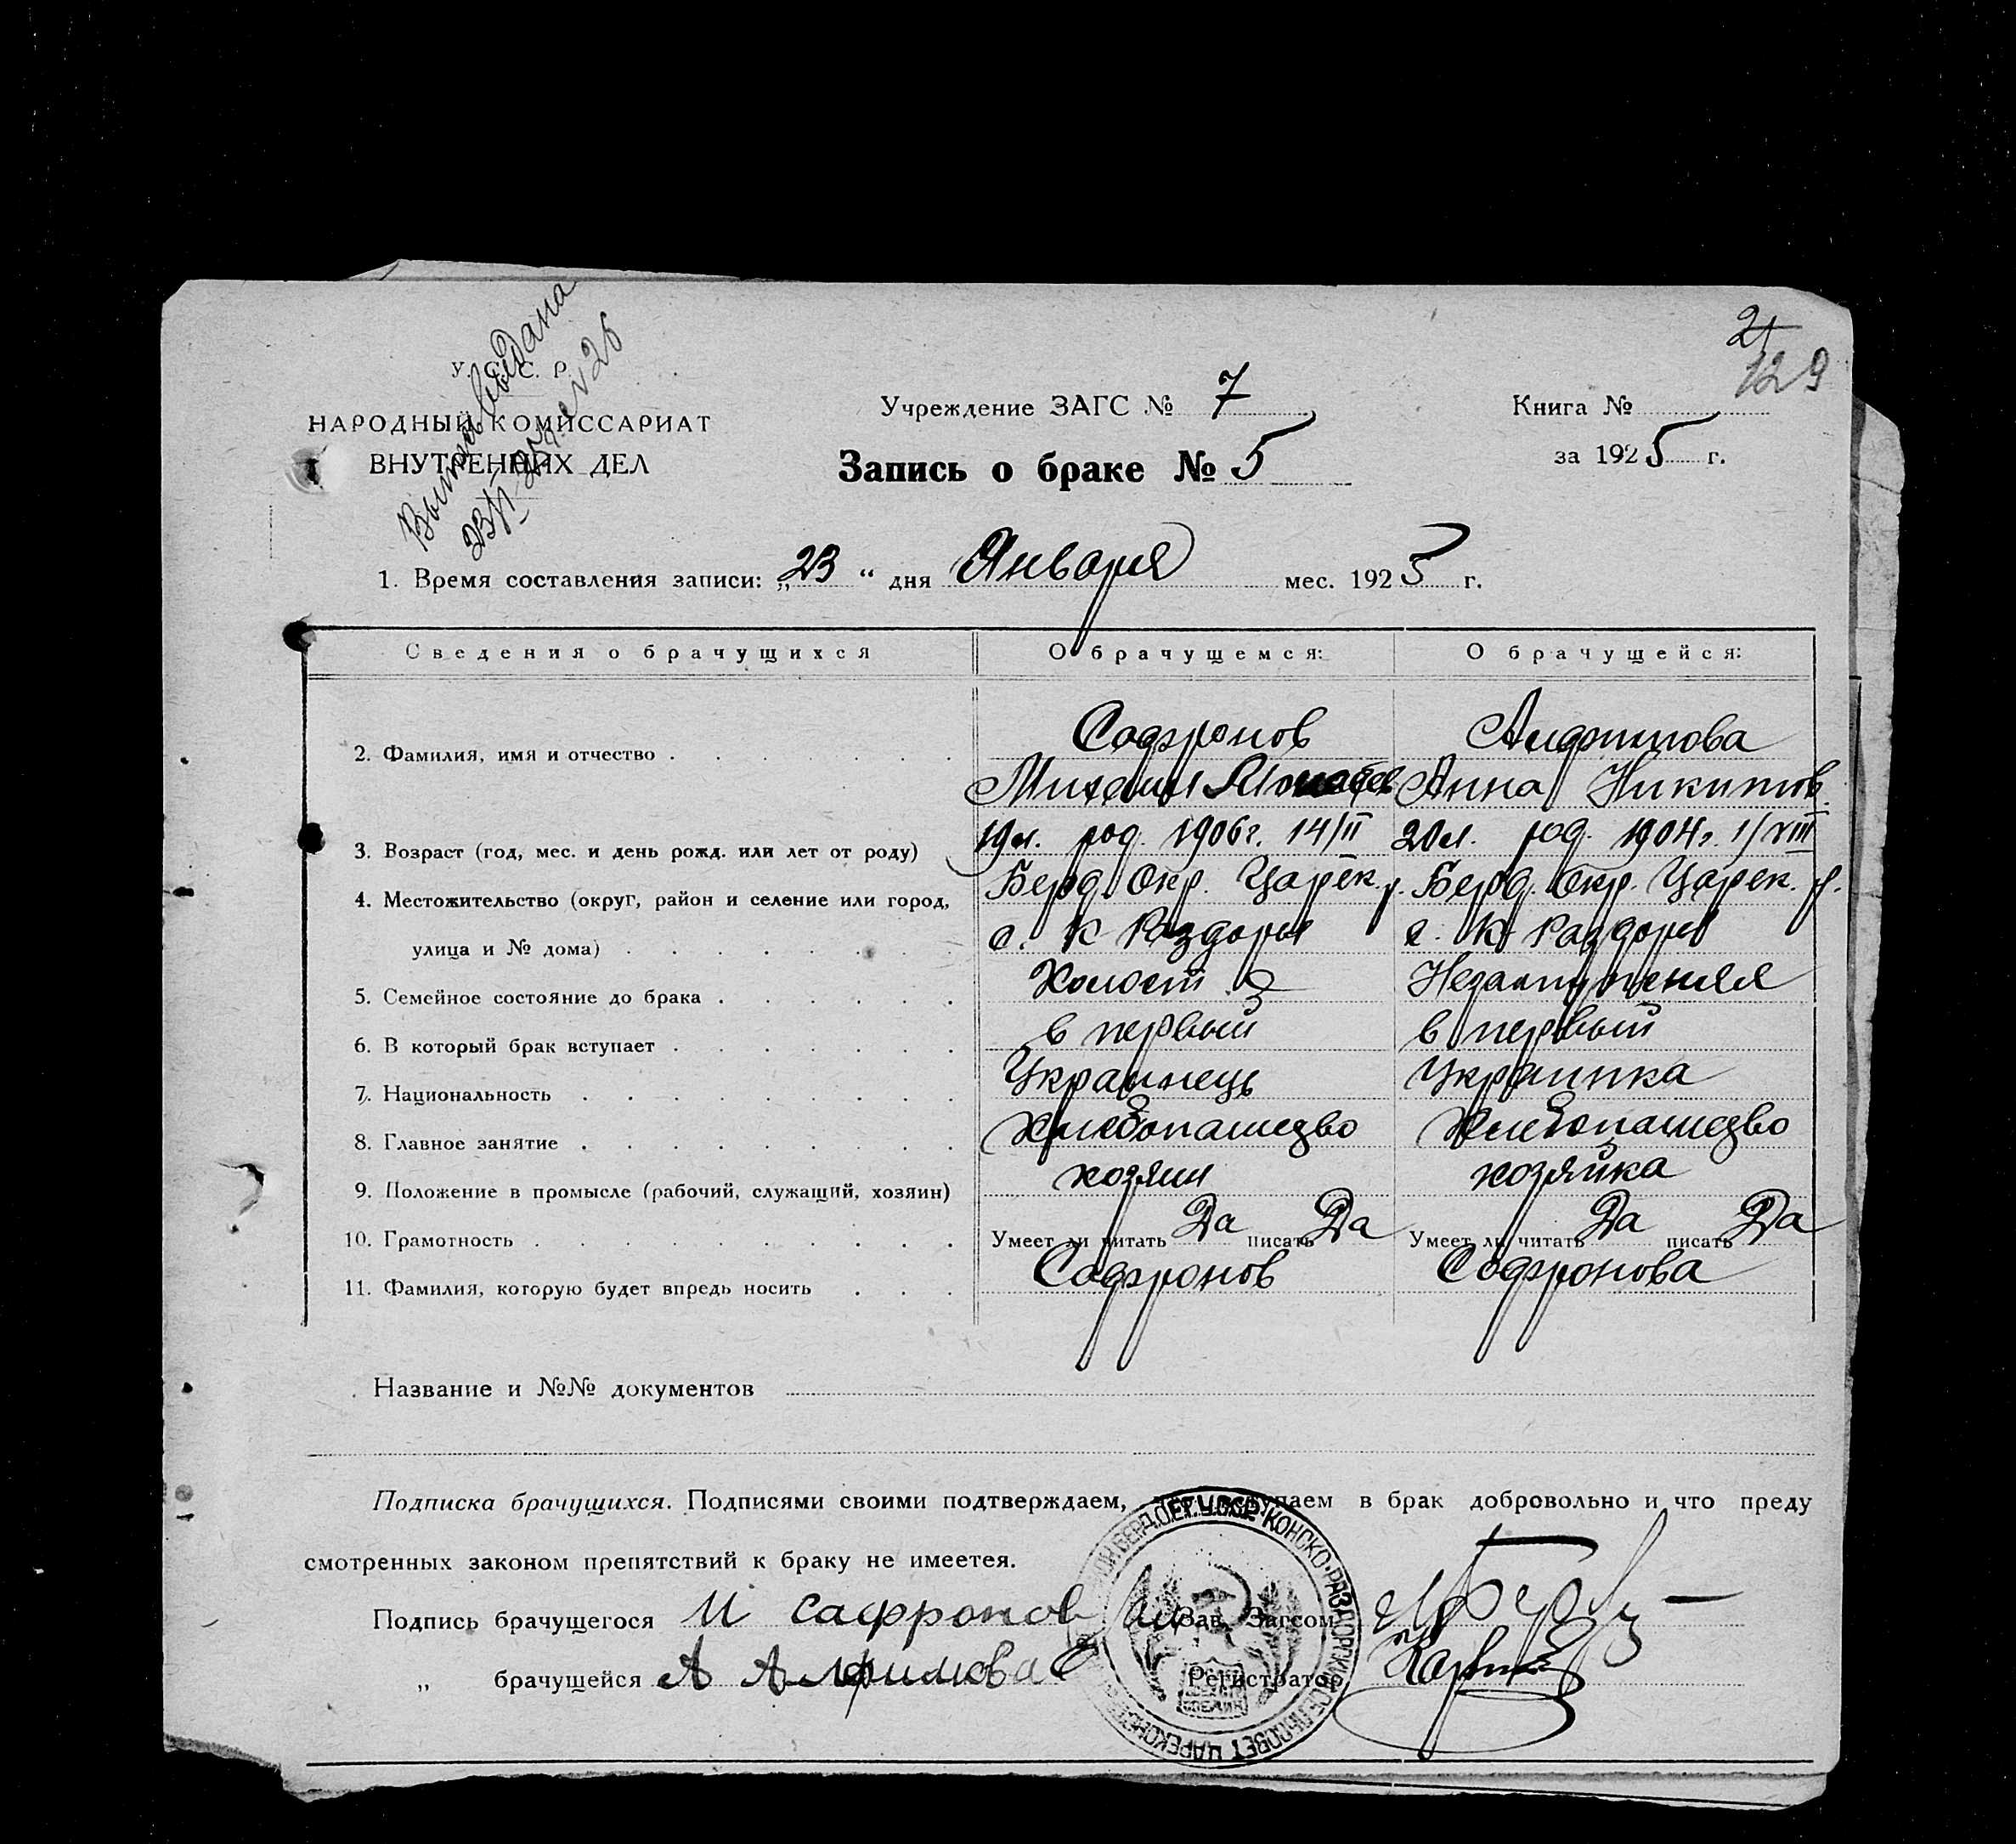 Выпись выдана
23/I 25 г. № 26
У. С. С. Р.
НАРОДНЫЙ КОМИССАРИАТ
ВНУТРЕННИХ ДЕЛ
21
129
Учреждение ЗАГС № 7
Книга №
Запись о браке № 5
за 1925 г.
1. Время составления записи: „23“ дня Января мес. 1925 г.
Сведения о брачущихся О брачущемся: О брачущейся:
2. Фамилия, имя и отчество Софронов Алфимова
Михаил Анна Никитов.
3. Возраст (год, мес. и день рожд. или лет от роду) 19 л. род. 1906 г. 14/II 20 л. род. 1904 г. 1/VIII
4. Местожительство (округ, район и селение или город, Берд. Окр. Царек. р. Берд. Окр. Царек. р.
улица и № дома) с. К Раздоры с. К Раздоры
5. Семейное состояние до брака Холост Незамужняя
6. В который брак вступает в первый в первый
7. Национальность Украинець Украинка
8. Главное занятие Хлебопашедво Хлебопашедво
9. Положение в промысле (рабочий, служащий, хозяин) хозяин хозяйка
10. Грамотность Умеет ли читать Да писать Да Умеет ли читать Да писать Да
11. Фамилия, которую будет впредь носить Софронов Софронова
Название и №№ документов
Подписка брачущихся. Подписями своими подтверждаем, что вступаем в брак добровольно и что преду
смотренных законом препятствий к браку не имеетея.
Подпись брачущегося М сафронов Зав. Загсом
„ брачущейся А Алфимова Регистратор
У.С.С.Р. КОНСКО-РАЗДОРСКИЙ СЕЛЬСОВЕТ ЦАРЕКОНСТ